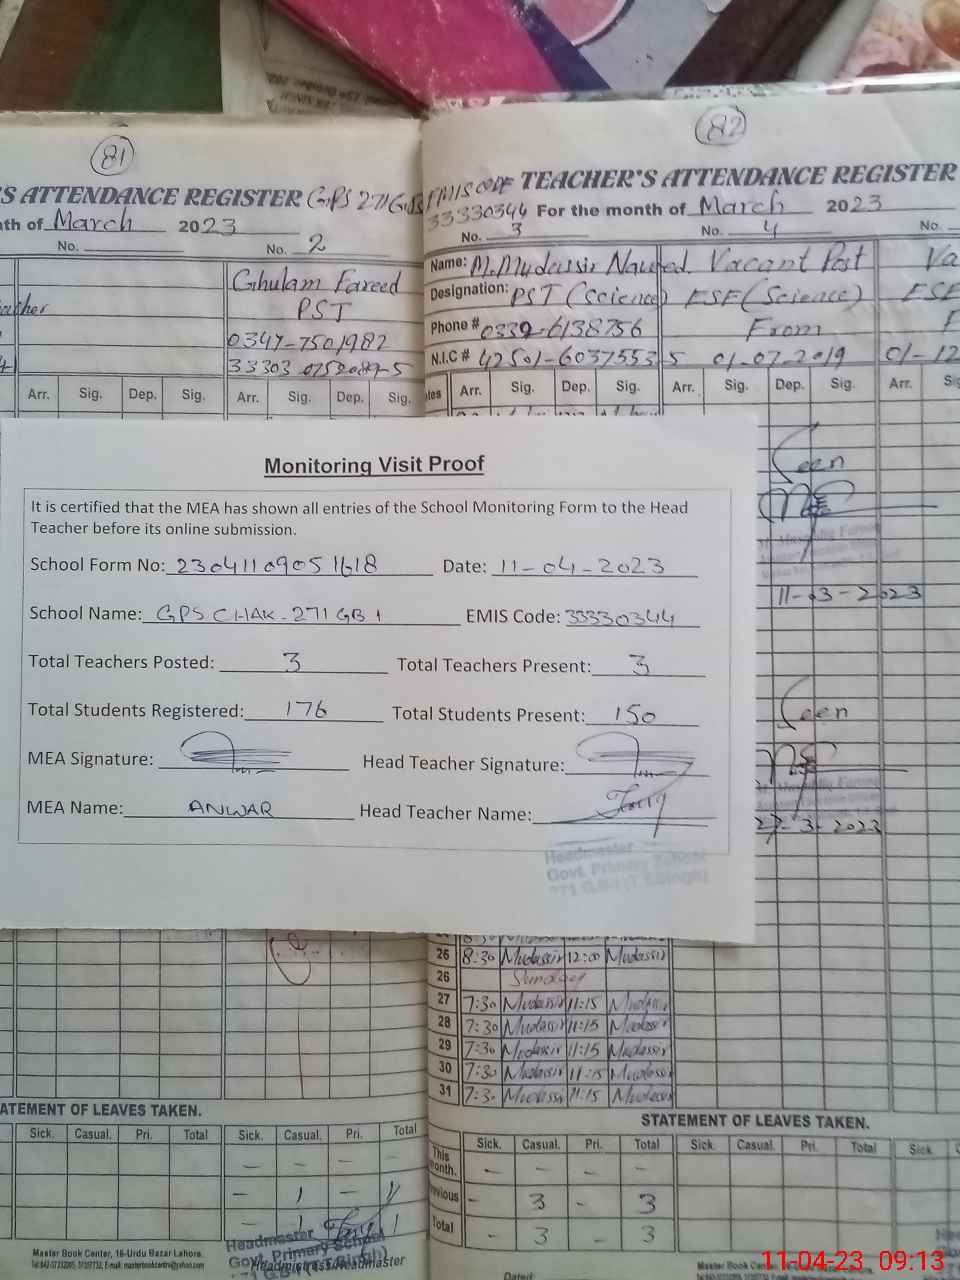 81
82
S ATTENDANCE REGISTER GPS 271 GB
EMIS CODE TEACHER'S ATTENDANCE REGISTER
33330344
th of March 2023
For the month of March 2023
No. No. 2
No. 3 No. 4 No.
Ghulam Fareed
PST
0347-7501982
Name: M. Mudassir Naveed Vacant Post Va
Designation: PST (Science) ESE (Science) ESE
Phone # From
N.I.C # 42501-6037553-5 01-07-2019 01-12
Arr. Sig. Dep. Sig. Arr. Sig. Dep. Sig.
Arr. Sig. Dep. Sig. Arr. Sig. Dep. Sig. Arr.
Monitoring Visit Proof
It is certified that the MEA has shown all entries of the School Monitoring Form to the Head
Teacher before its online submission.
School Form No: 23041109051618 Date: 11-04-2023
School Name: GPS CHAK-271 GB 1 EMIS Code: 33330344
Total Teachers Posted: 3 Total Teachers Present: 3
Total Students Registered: 176 Total Students Present: 150
MEA Signature: Head Teacher Signature:
MEA Name: ANWAR Head Teacher Name:
Headmaster
Govt. Primary School
Seen
11-03-2023
Seen
27-3-2023
26 8:30 Mudassir 12:00 Mudassir
26 Sunday
27 7:30 Mudassir 11:15 Mudassir
28 7:30 Mudassir 11:15 Mudassir
29 7:30 Mudassir 11:15 Mudassir
30 7:30 Mudassir 11:15 Mudassir
31 7:30 Mudassir 11:15 Mudassir
ATEMENT OF LEAVES TAKEN.
Sick. Casual. Pri. Total Sick. Casual. Pri. Total
– – – –
– 1 – 1
– 1 1
STATEMENT OF LEAVES TAKEN.
Sick. Casual. Pri. Total Sick. Casual. Pri. Total Sick.
This month. – – – –
Previous – 3 – 3
Total 3 3
Headmaster
Govt. Primary School
Master Book Center, 16-Urdu Bazar Lahore.
Headmistress/Headmaster
Master Book Center, 16-Urdu
Dated:
11-04-23 09:13